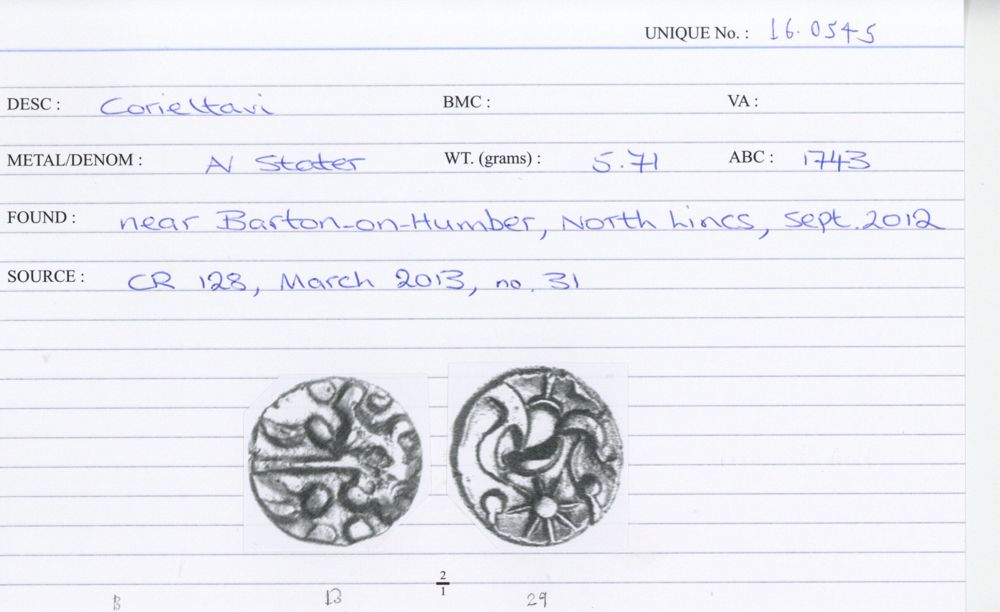 UNIQUE No. : 16.0545
DESC : Corieltavi BMC : VA :
METAL/DENOM : AV Stater WT. (grams) : 5.71 ABC : 1743
FOUND : near Barton-on-Humber, North Lincs, Sept. 2012
SOURCE : CR 128, March 2013, no. 31
2
1
B 13 29